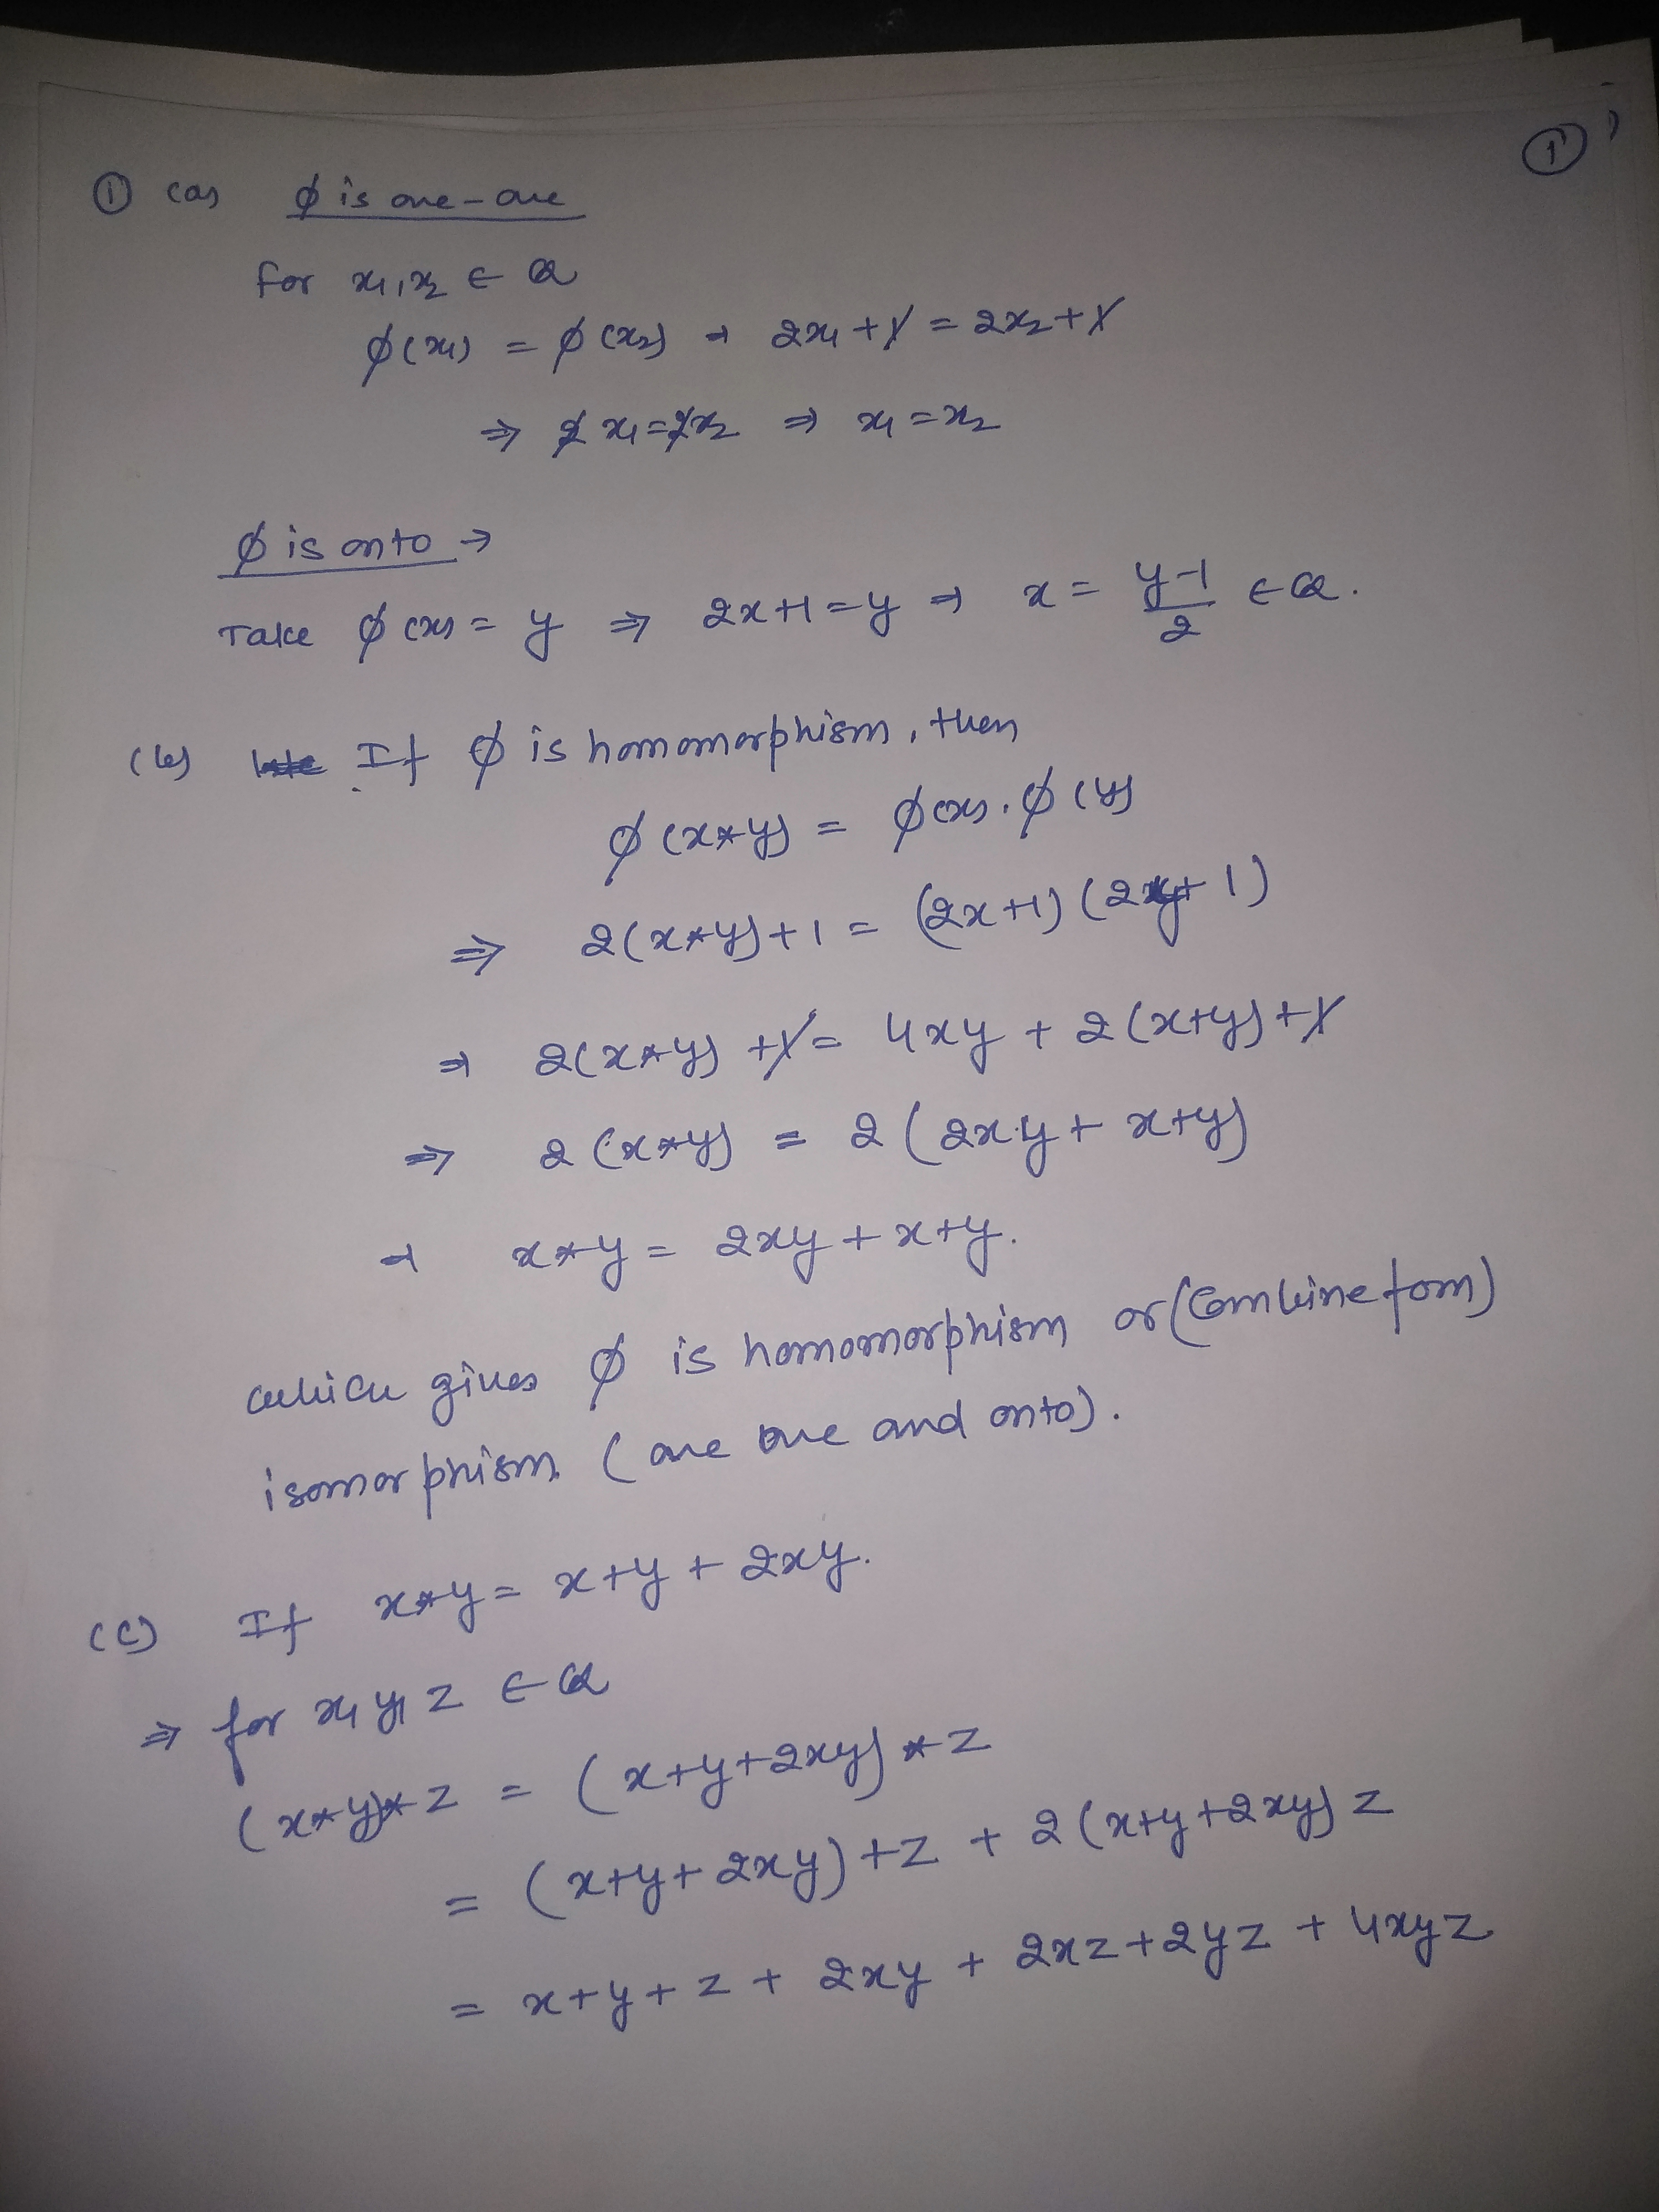 ①
① (a) ϕ is one-one
For x₁, x₂ ∈ Q
ϕ(x₁) = ϕ(x₂) ⇒ 2x₁ + 1 = 2x₂ + 1
⇒ 2x₁ = 2x₂ ⇒ x₁ = x₂
ϕ is onto →
Take ϕ(x) = y ⇒ 2x+1 = y ⇒ x = (y-1)/2 ∈ Q.
(b) If ϕ is homomorphism, then
ϕ(x*y) = ϕ(x).ϕ(y)
⇒ 2(x*y)+1 = (2x+1)(2y+1)
⇒ 2(x*y) + 1 = 4xy + 2(x+y) + 1
⇒ 2(x*y) = 2(2xy + x+y)
⇒ x*y = 2xy + x+y.
which gives ϕ is homomorphism or (Combine fom)
isomorphism (one one and onto).
(c) If x*y = x+y + 2xy.
⇒ for x, y, z ∈ Q
(x*y)*z = (x+y+2xy)*z
= (x+y+2xy)+z + 2(x+y+2xy)z
= x+y+z + 2xy + 2xz+2yz + 4xyz